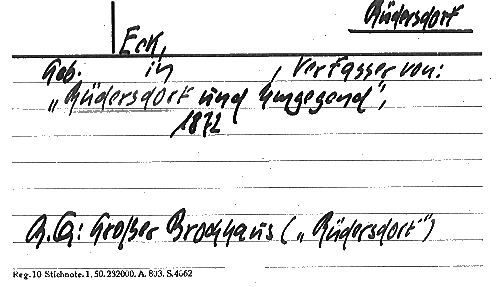 Rüdersdorf
Eck,
Geb. in , Verfasser von:
„Rüdersdorf und Umgegend",
1872
A.Q: Großer Brockhaus („Rüdersdorf")
Reg. 10 Stichnote. 1, 50. 232000. A. 803. S. 4062